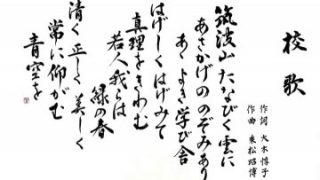 校歌
作詞 大木惇子
作曲 乗松昭博
筑波山たなびく雲に
あさかげののぞみあり
あゝよき学び舎
はげしくはげみて
真理をきわむ
若人我らは
緑の春
清く正しく美しく
常に仰がむ
青空を